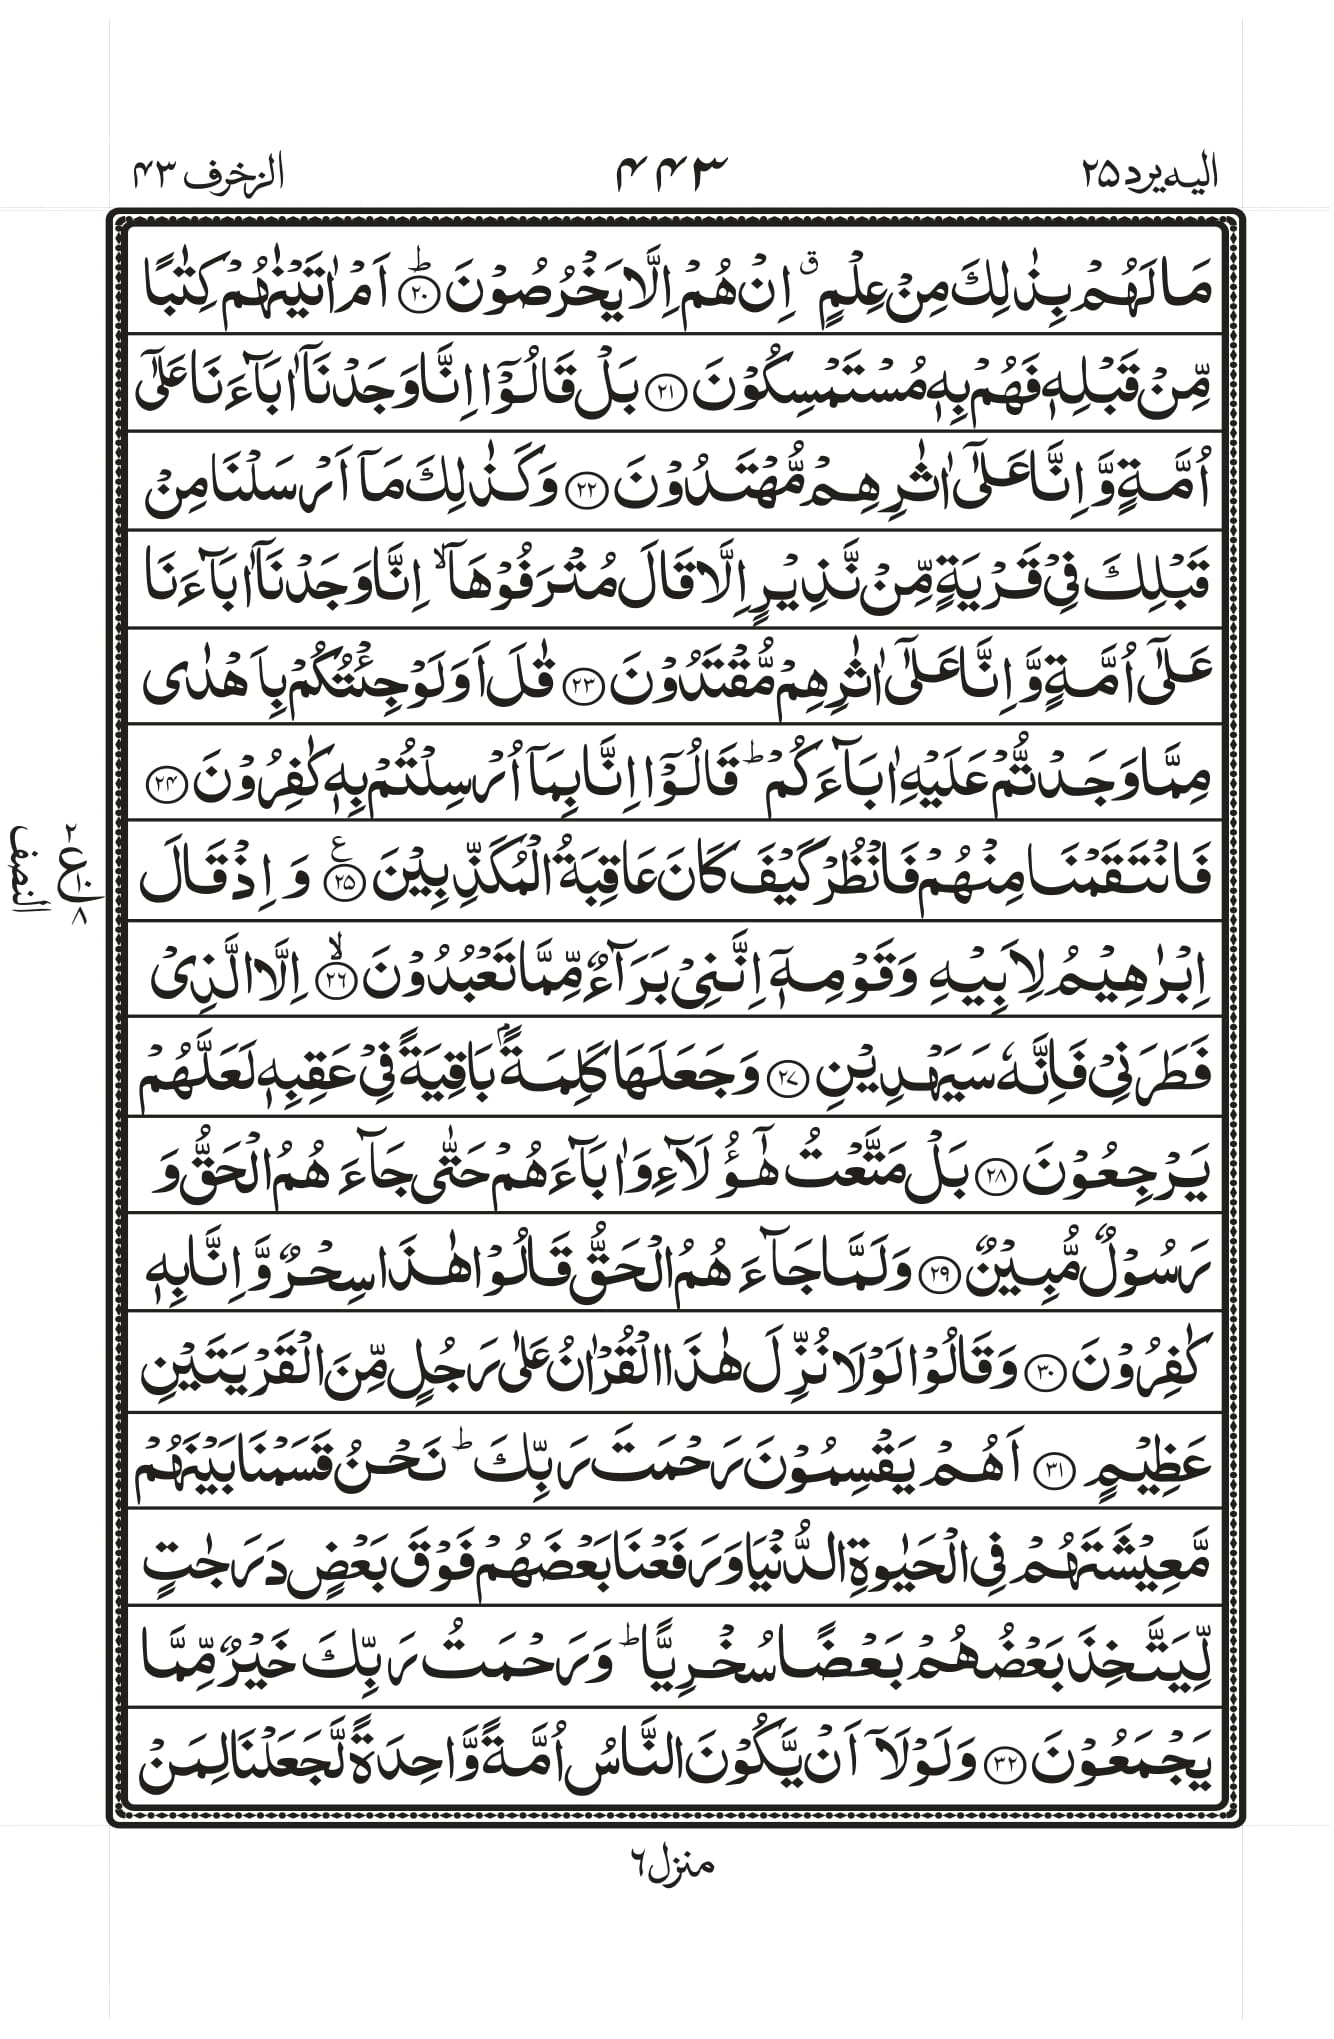 اليه يرد ۲۵
۴۴۳
الزخرف ۴۳
مَا لَهُمْ بِذٰلِكَ مِنْ عِلْمٍ ۗ اِنْ هُمْ اِلَّا يَخْرُصُوْنَ ؕ ﴿۲۰﴾ اَمْ اٰتَيْنٰهُمْ كِتٰبًا
مِّنْ قَبْلِهٖ فَهُمْ بِهٖ مُسْتَمْسِكُوْنَ ﴿۲۱﴾ بَلْ قَالُوْۤا اِنَّا وَجَدْنَاۤ اٰبَآءَنَا عَلٰۤى
اُمَّةٍ وَّ اِنَّا عَلٰۤى اٰثٰرِهِمْ مُّهْتَدُوْنَ ﴿۲۲﴾ وَ كَذٰلِكَ مَاۤ اَرْسَلْنَا مِنْ
قَبْلِكَ فِيْ قَرْيَةٍ مِّنْ نَّذِيْرٍ اِلَّا قَالَ مُتْرَفُوْهَاۤ ۙ اِنَّا وَجَدْنَاۤ اٰبَآءَنَا
عَلٰۤى اُمَّةٍ وَّ اِنَّا عَلٰۤى اٰثٰرِهِمْ مُّقْتَدُوْنَ ﴿۲۳﴾ قٰلَ اَوَ لَوْ جِئْتُكُمْ بِاَهْدٰى
مِمَّا وَجَدْتُّمْ عَلَيْهِ اٰبَآءَكُمْ ؕ قَالُوْۤا اِنَّا بِمَاۤ اُرْسِلْتُمْ بِهٖ كٰفِرُوْنَ ﴿۲۴﴾
فَانْتَقَمْنَا مِنْهُمْ فَانْظُرْ كَيْفَ كَانَ عَاقِبَةُ الْمُكَذِّبِيْنَ ﴿۲۵﴾ ع وَ اِذْ قَالَ
۲ ع ۱۰ ۸
النصف
اِبْرٰهِيْمُ لِاَبِيْهِ وَ قَوْمِهٖۤ اِنَّنِيْ بَرَآءٌ مِّمَّا تَعْبُدُوْنَ ۙ ﴿۲۶﴾ اِلَّا الَّذِيْ
فَطَرَنِيْ فَاِنَّهٗ سَيَهْدِيْنِ ﴿۲۷﴾ وَ جَعَلَهَا كَلِمَةًۢ بَاقِيَةً فِيْ عَقِبِهٖ لَعَلَّهُمْ
يَرْجِعُوْنَ ﴿۲۸﴾ بَلْ مَتَّعْتُ هٰۤؤُلَآءِ وَ اٰبَآءَهُمْ حَتّٰى جَآءَهُمُ الْحَقُّ وَ
رَسُوْلٌ مُّبِيْنٌ ﴿۲۹﴾ وَ لَمَّا جَآءَهُمُ الْحَقُّ قَالُوْا هٰذَا سِحْرٌ وَّ اِنَّا بِهٖ
كٰفِرُوْنَ ﴿۳۰﴾ وَ قَالُوْا لَوْلَا نُزِّلَ هٰذَا الْقُرْاٰنُ عَلٰى رَجُلٍ مِّنَ الْقَرْيَتَيْنِ
عَظِيْمٍ ﴿۳۱﴾ اَهُمْ يَقْسِمُوْنَ رَحْمَتَ رَبِّكَ ؕ نَحْنُ قَسَمْنَا بَيْنَهُمْ
مَّعِيْشَتَهُمْ فِي الْحَيٰوةِ الدُّنْيَا وَ رَفَعْنَا بَعْضَهُمْ فَوْقَ بَعْضٍ دَرَجٰتٍ
لِّيَتَّخِذَ بَعْضُهُمْ بَعْضًا سُخْرِيًّا ؕ وَ رَحْمَتُ رَبِّكَ خَيْرٌ مِّمَّا
يَجْمَعُوْنَ ﴿۳۲﴾ وَ لَوْلَاۤ اَنْ يَّكُوْنَ النَّاسُ اُمَّةً وَّاحِدَةً لَّجَعَلْنَا لِمَنْ
منزل ۶